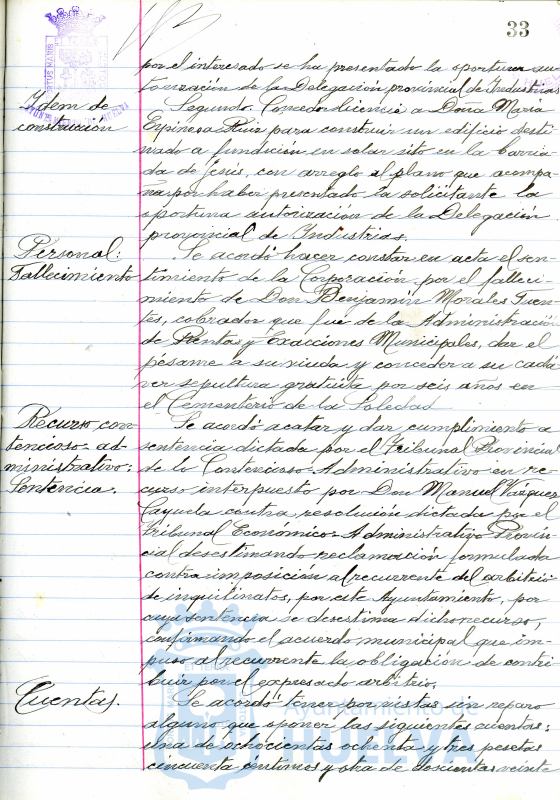 33
por el interesado se ha presentado la oportuna au-
torización de la Delegación provincial de Industrias
Idem de
construcción
Segundo. Conceder licencia a Doña María
Espinosa Ruiz para construir un edificio desti-
nado a fundición en solar sito en la barria-
da de Jesús, con arreglo al plano que acompa-
ña por haber presentado la solicitante la
oportuna autorización de la Delegación
provincial de Industrias.
Personal:
Fallecimiento
Se acordó hacer constar en acta el sen-
timiento de la Corporación por el falleci-
miento de Don Benjamín Morales Fuen-
tes, cobrador que fué de la Administración
de Rentas y Exacciones Municipales, dar el
pésame a su viuda y conceder a su cadá-
ver sepultura gratuita por seis años en
el Cementerio de la Soledad.
Recurso con-
tencioso-ad-
ministrativo:
Sentencia.
Se acordó acatar y dar cumplimiento a
sentencia dictada por el Tribunal Provincial
de lo Contencioso-Administrativo en re-
curso interpuesto por Don Manuel Vázquez
Cayuela contra resolución dictada por el
Tribunal Económico-Administrativo Provin-
cial desestimando reclamación formulada
contra imposición al recurrente del arbitrio
de inquilinatos, por este Ayuntamiento, por
cuya sentencia se desestima dicho recurso,
confirmando el acuerdo municipal que im-
puso al recurrente la obligación de contri-
buir por el expresado arbitrio.
Cuentas.
Se acordó tener por vistas sin reparo
alguno que oponer las siguientes cuentas:
una de ochocientas ochenta y tres pesetas
cincuenta céntimos y otra de doscientas veinte
Ayuntamiento de
HUELVA